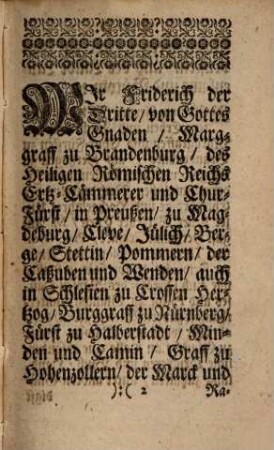 WIr Friderich der
Dritte / von Gottes
Gnaden / Marg-
graff zu Brandenburg / des
Heiligen Römischen Reichs
Ertz-Cämmerer und Chur-
Fürst / in Preußen / zu Mag-
deburg / Cleve / Jülich / Ber-
ge / Stettin / Pommern / der
Caßuben und Wenden / auch
in Schlesien zu Crossen Her-
tzog / Burggraff zu Nürnberg /
Fürst zu Halberstadt / Min-
den und Camin / Graff zu
Hohenzollern / der Marck und
):( 2 Ra-